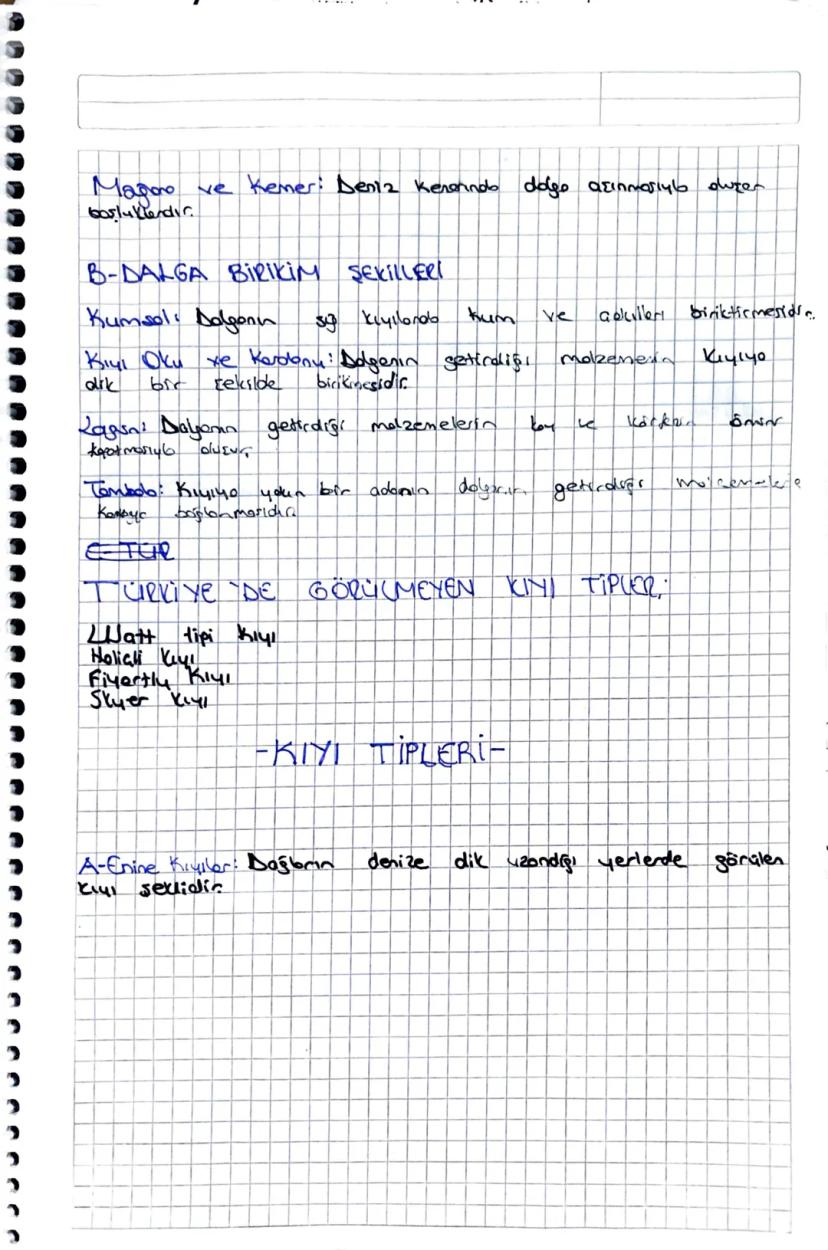 Mağara ve Kemer: Deniz kenarında dalga aşınmasıyla oluşan
boşluklardır.
B-DALGA BİRİKİM ŞEKİLLERİ
Kumsal: Dalganın sığ kıyılarda kum ve çakılları biriktirmesidir.
Kıyı Oku ve Kordonu: Dalganın getirdiği malzemenin kıyıya
dik bir şekilde birikmesidir.
Lagün: Dalganın getirdiği malzemelerin koy ve körfezin önünü
kapatmasıyla oluşur.
Tombolo: Kıyıya yakın bir adanın dalganın getirdiği malzemelerle
karaya bağlanmasıdır.
C-TÜR
TÜRKİYE'DE GÖRÜLMEYEN KIYI TİPLERİ
Watt tipi kıyı
Haliçli kıyı
Fiyortlu kıyı
Skyer kıyı
-KIYI TİPLERİ-
A-Enine Kıyılar: Dağların denize dik uzandığı yerlerde görülen
kıyı şeklidir.